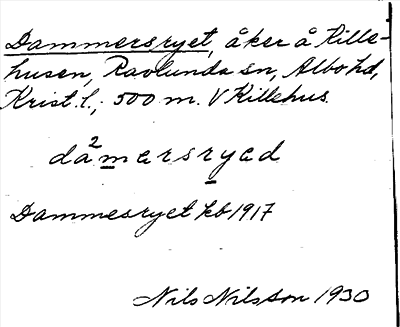 Dammersryet, åker å Kille-
husen, Ravlunda sn, Albo hd,
Krist. l., 500 m. V Killehus.
da²mersryed
Dammesryet kb 1917
Nils Nilsson 1930